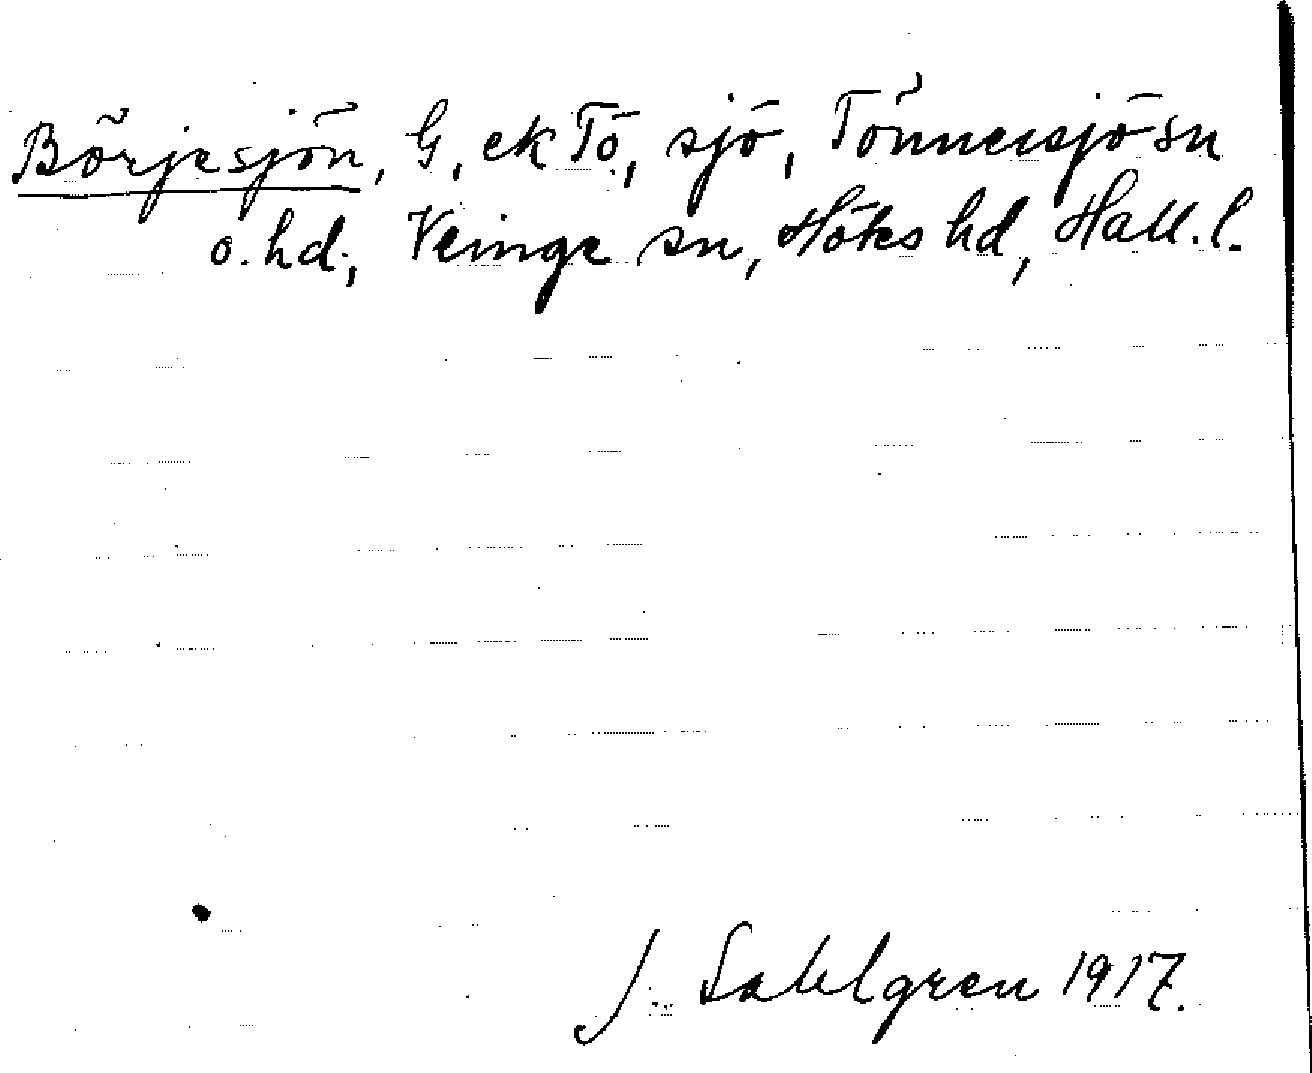 Börjesjön, G, ek Tö, sjö, Tönnersjö sn
o. hd., Veinge sn, Höks hd, Hall. l.
J. Sahlgren 1917.